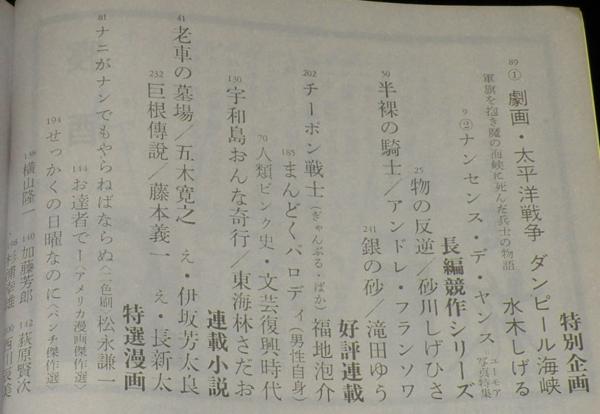 特別企画
89 ① 劇画・太平洋戦争 ダンピール海峡 水木しげる
軍旗を抱き魔の海峡に死んだ兵士の物語
9 ② ナンセンス・デ・ヤンス ユーモア写真特集
長編競作シリーズ
25 物の反逆/砂川しげひさ
50 半裸の騎士/アンドレ・フランソワ
241 銀の砂/滝田ゆう
好評連載
202 チーポン戦士(ぎゃんぶる・ばか) 福地泡介
185 まんどくパロディ(男性自身)
70 人類ピンク史・文芸復興時代
130 宇和島おんな奇行/東海林さだお
連載小説
41 老車の墓場/五木寛之 え・伊坂芳太良
232 巨根傳説/藤本義一 え・長新太
特選漫画
81 ナニがナンでもやらねばならぬ(二色刷) 松永謙一
144 お達者で―(アメリカ漫画傑作選)
194 せっかくの日曜なのに(パンチ傑作選)
横山隆一 140 加藤芳郎 142 荻原賢次
杉浦幸雄